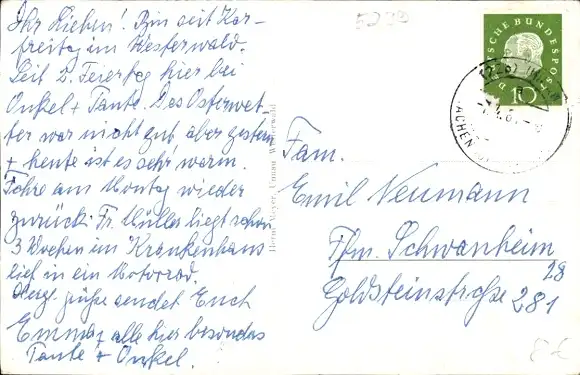 Ihr Lieben! Bin seit Kar-
freitag im Westerwald.
Seit 2. Feiertag hier bei
Onkel + Tante. Das Osterwet-
ter war nicht gut aber gestern
+ heute ist es sehr warm.
Fahre am Montag wieder
zurück. Fr. Müller liegt schon
3 Wochen im Krankenhaus
lief in ein Motorrad.
Herzl. Grüße sendet Euch
Emma + alle hier besonders
Tante + Onkel.
Meyer, Unnau Westerwald
5239
DEUTSCHE BUNDESPOST
10
Fam.
Emil Neumann
Ffm. Schwanheim
28
Goldsteinstraße 281